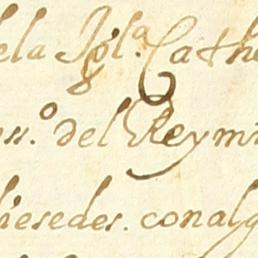 ela Igl.ª Cathe
ss.º del Rey mi
iesedes. con alg